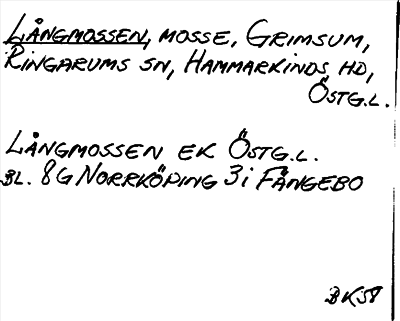 LÅNGMOSSEN, MOSSE, GRIMSUM,
RINGARUMS SN, HAMMARKINDS HD,
ÖSTG.L.
LÅNGMOSSEN EK ÖSTG.L.
BL. 8G NORRKÖPING 3i FÅNGEBO
BK58